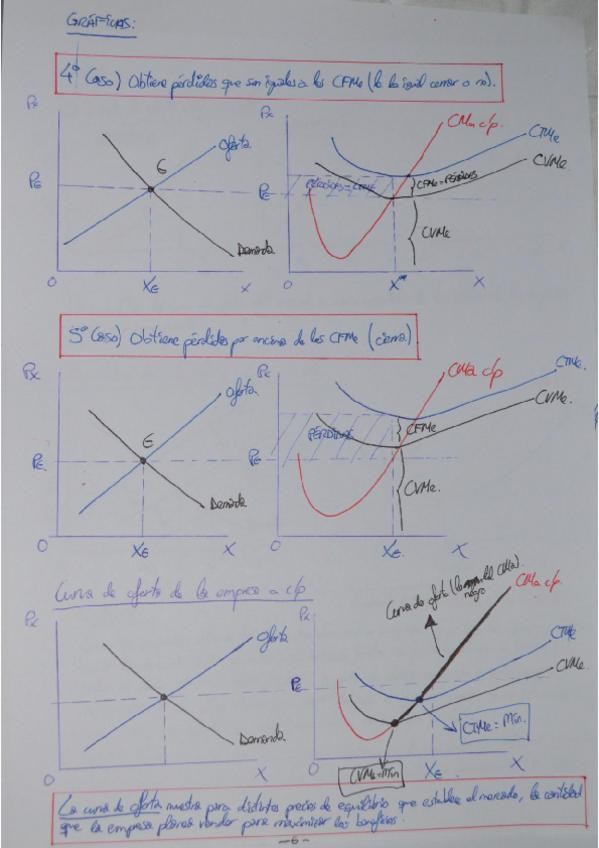 GRÁFICAS:
4º Caso) Obtiene pérdidas que son iguales a los CFMe (le da igual cerrar o no).
Px
Oferta
E
PE
Demanda
O
XE
X
Px
CMa c/p
CTMe
CVMe
PÉRDIDAS = CFMe
CFMe = PÉRDIDAS
PE
CVMe
O
X*
X
5º Caso) Obtiene pérdidas por encima de los CFMe (cierra)
Px
Oferta
E
PE
Demanda
O
XE
X
Px
CMa c/p
CTMe
CVMe.
PÉRDIDAS
CFMe
PE
CVMe.
O
XE.
X
Curva de oferta de la empresa a c/p
Px
Oferta
Demanda.
O
X
Curva de oferta (la
del CMa).
negro
CMa c/p.
Px
CTMe
CVMe
PE
CTMe = Mín.
CVMe = Mín
O
XE.
X
La curva de oferta muestra para distintos precios de equilibrio que establece el mercado, la cantidad
que la empresa planea vender para maximizar los beneficios.
-6-